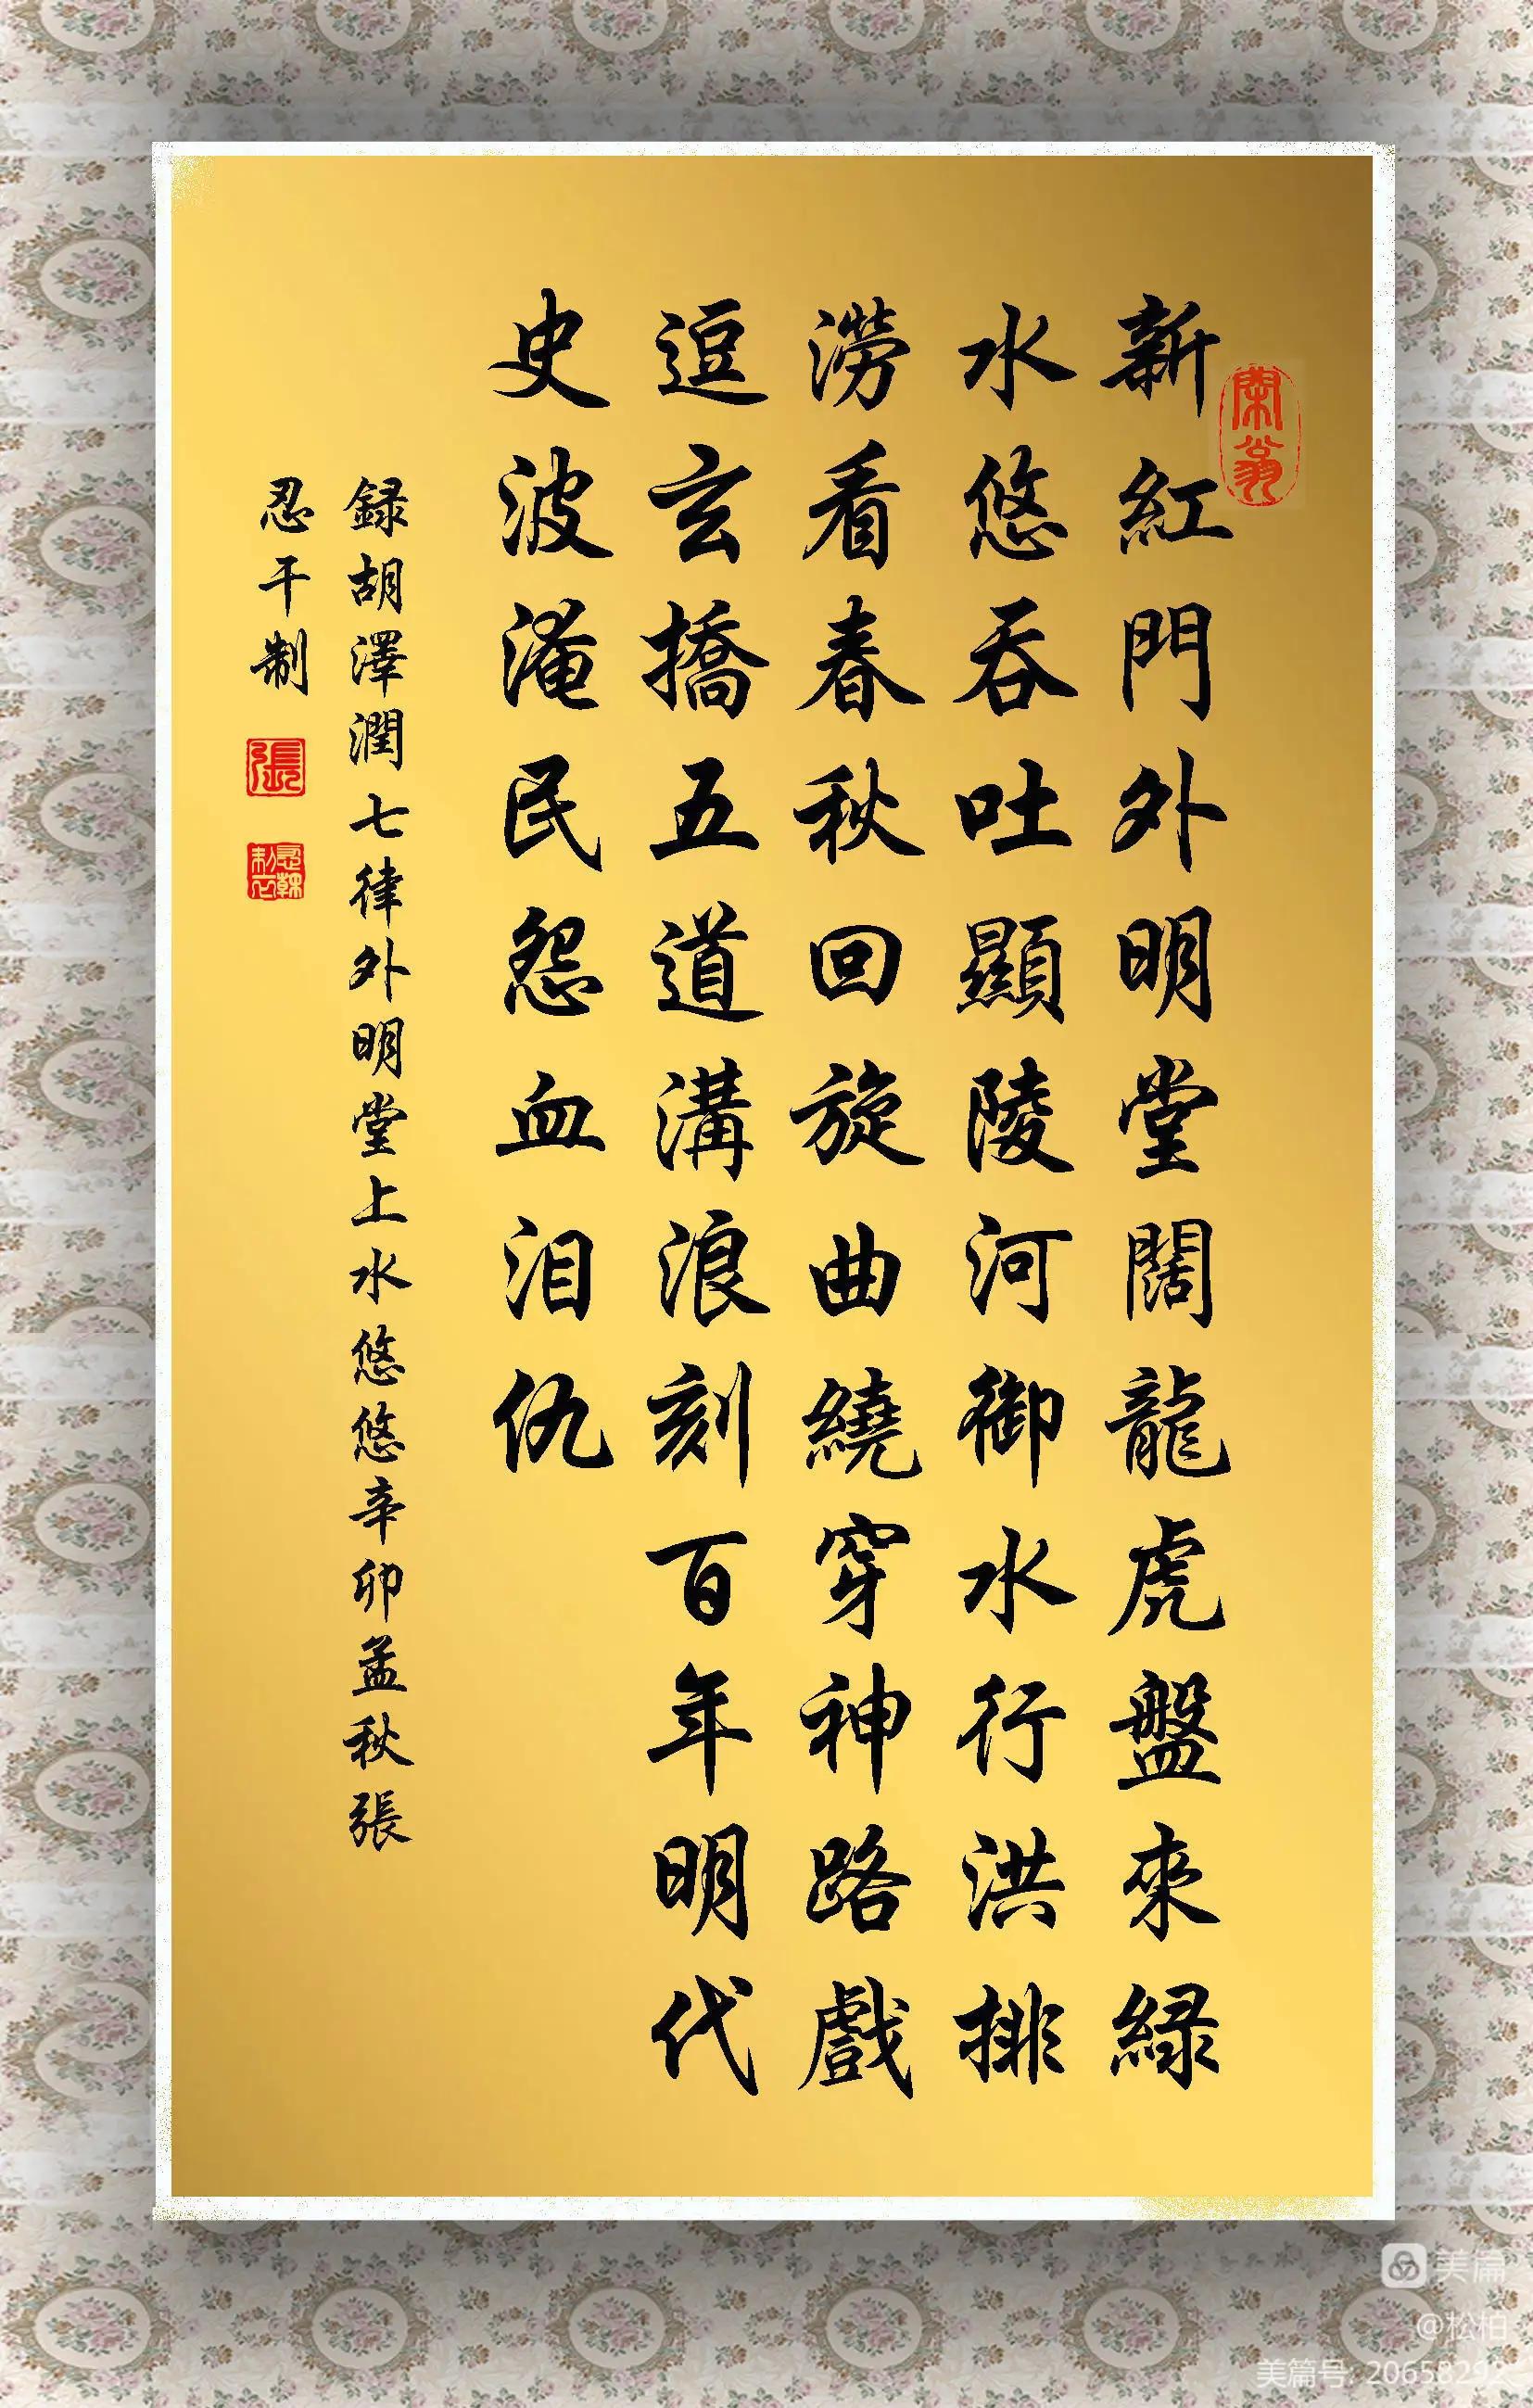 新紅門外明堂闊龍虎盤來緑
水悠吞吐顯陵河御水行洪排
澇看春秋回旋曲繞穿神路戲
逗玄撟五道溝浪刻百年明代
史波淹民怨血泪仇
録胡澤潤七律外明堂上水悠悠辛卯孟秋張
忍干制
張
美篇
@松柏